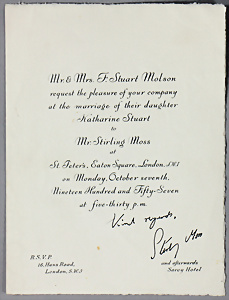 Mr. & Mrs. F. Stuart Molson
request the pleasure of your company
at the marriage of their daughter
Katharine Stuart
to
Mr. Stirling Moss
at
St. Peter's, Eaton Square, London, S.W.1
on Monday, October seventh,
Nineteen Hundred and Fifty-Seven
at five-thirty p.m.
Kind regards,
Stirling Moss
R.S.V.P.
16, Hans Road,
London, S.W.3
and afterwards
Savoy Hotel.